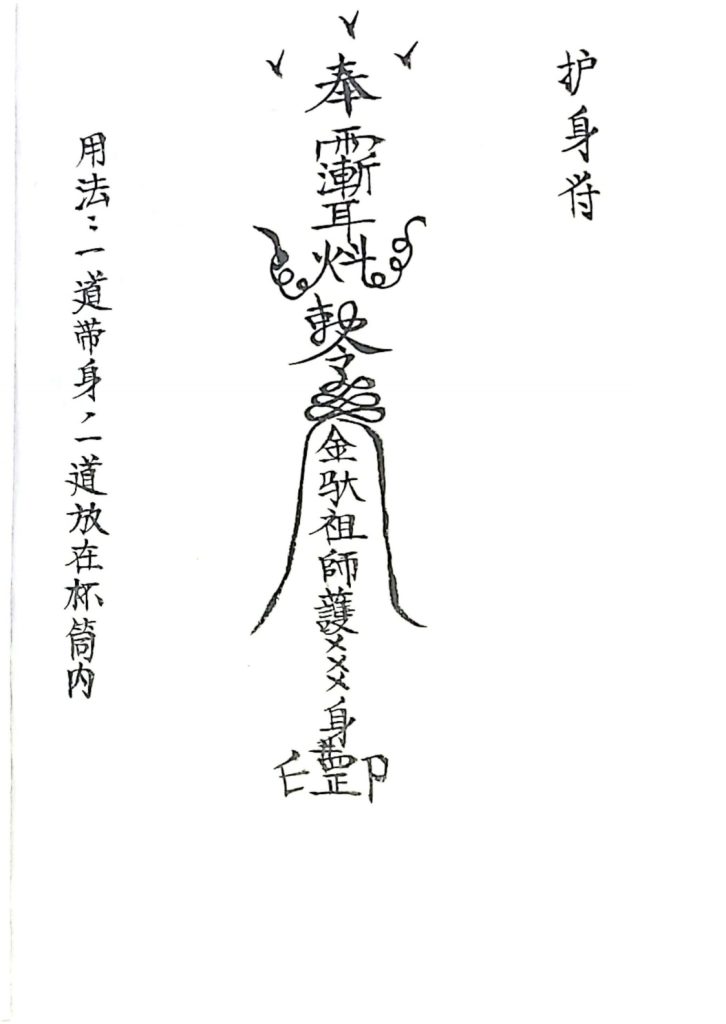 护身符
奉
敕令
金驮祖師護×××身
罡
用法：一道带身，一道放在杯筒内